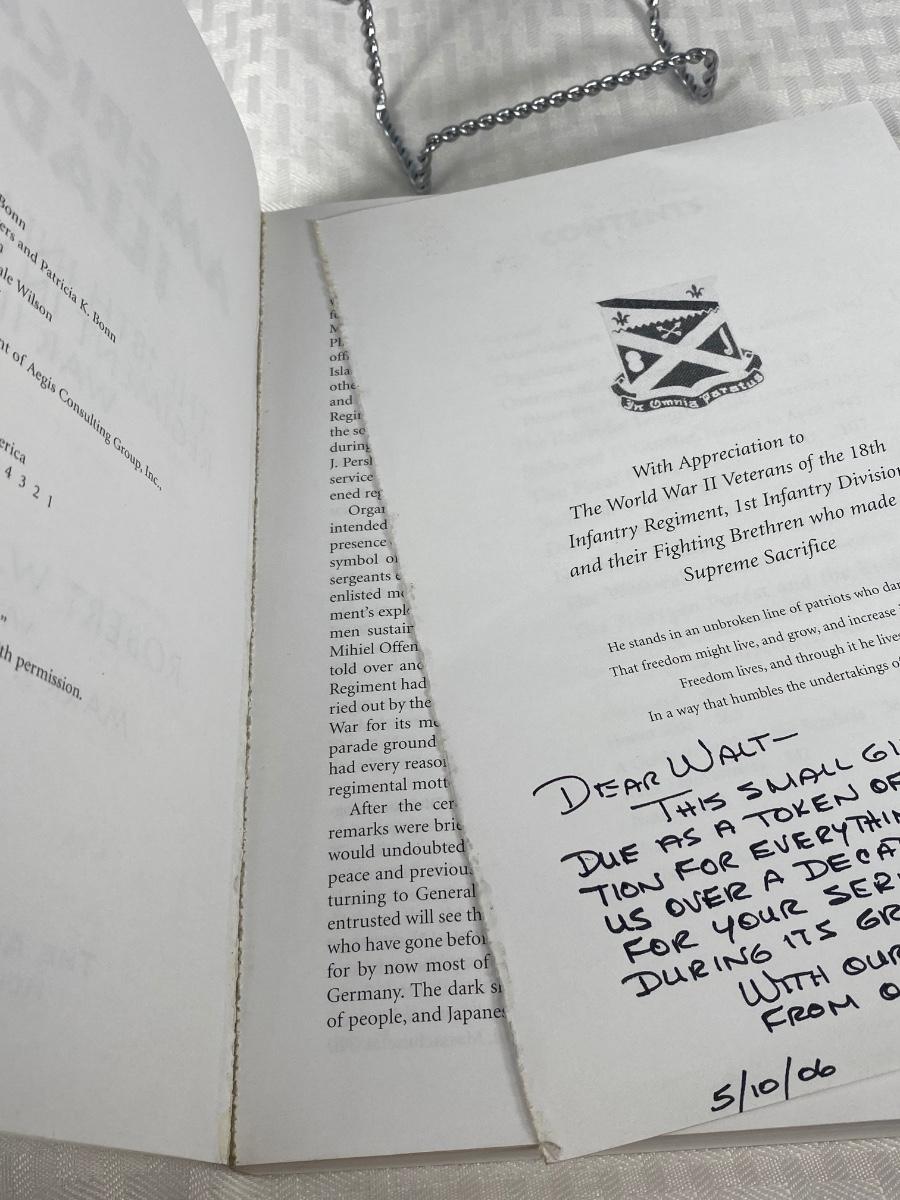 Bonn
ers and Patricia K. Bonn
ale Wilson
nt of Aegis Consulting Group, Inc.,
erica
4 3 2 1
th permission.
CONTENTS
Pl
offi
Isla
othe
and
Regi
the so
during
J. Persh
service
ened reg
Organ
intended
presence
symbol o
sergeants
enlisted me
ment's explo
men sustain
Mihiel Offen
told over and
Regiment had
ried out by the
War for its me
parade ground
had every reason
regimental mott
After the cer
remarks were brie
would undoubted
peace and previou
turning to General
entrusted will see th
who have gone befo
for by now most of
Germany. The dark s
of people, and Japane
In Omnia Paratus
With Appreciation to
The World War II Veterans of the 18th
Infantry Regiment, 1st Infantry Division
and their Fighting Brethren who made
Supreme Sacrifice
He stands in an unbroken line of patriots who dar
That freedom might live, and grow, and increase
Freedom lives, and through it he lives
In a way that humbles the undertakings of
DEAR WALT—
THIS SMALL GI
DUE AS A TOKEN OF
TION FOR EVERYTHIN
US OVER A DECA
FOR YOUR SER
DURING ITS GR
WITH OUR
FROM O
5/10/06